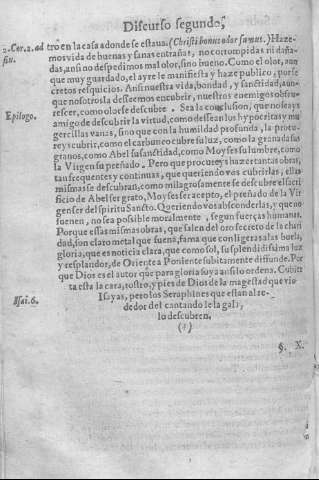 Discurso segundo,
2. Cor. 2. ad tro en la casa adonde se estaua. (Christi bonus odor sumus.) Haze-
fin. mos vida de buenas y sanas entrañas, no corrompidas ni daña-
das, ansi no despedimos mal olor, sino bueno. Como el olor, aun
que muy guardado, el ayre le manifiesta y haze publico, por se
cretos resquicios. Ansi nuestra vida, bondad, y sanctidad, aun-
que nosotros la desseemos encubrir, nuestros enemigos obscu-
rescer, como olor se descubre. Sea la conclusion, que no seays
Epilogo. amigo de descubrir la virtud, como dessean los hypocritas y mu
gercillas vanas, sino que con la humildad profunda, la procu-
reys cubrir, como el carbunco cubre su luz, como la granada sus
granos, como Abel su sanctidad, como Moyses su lumbre, como
la Virgen su preñado. Pero que procureys hazer tantas obras,
tan frequentes y continuas, que queriendo vos cubrirlas, ellas
mismas se descubran, como milagrosamente se descubre el sacri
ficio de Abel ser grato, Moyses ser accepto, el preñado de la Vir
gen ser del spiritu Sancto. Queriendo vos absconderlas, y que no
suenen, no sea posible moralmente, segun fuerças humanas.
Porque essas mismas obras, que salen del oro secreto de la chari
dad, son claro metal que suena, fama que con ligeras alas buela,
gloria, que es noticia clara, que como sol, su splendidissima luz
y resplandor, de Oriente a Poniente subitamente diffunde. Por
que Dios es autor que para gloria suya ansi lo ordena. Cubier
ta esta la cara, rostro, y pies de Dios de la magestad que vio
Isai. 6. Isayas, pero los Seraphines que estan al re-
dedor del cantando le la gala,
lo descubren.
(?)
§. X.